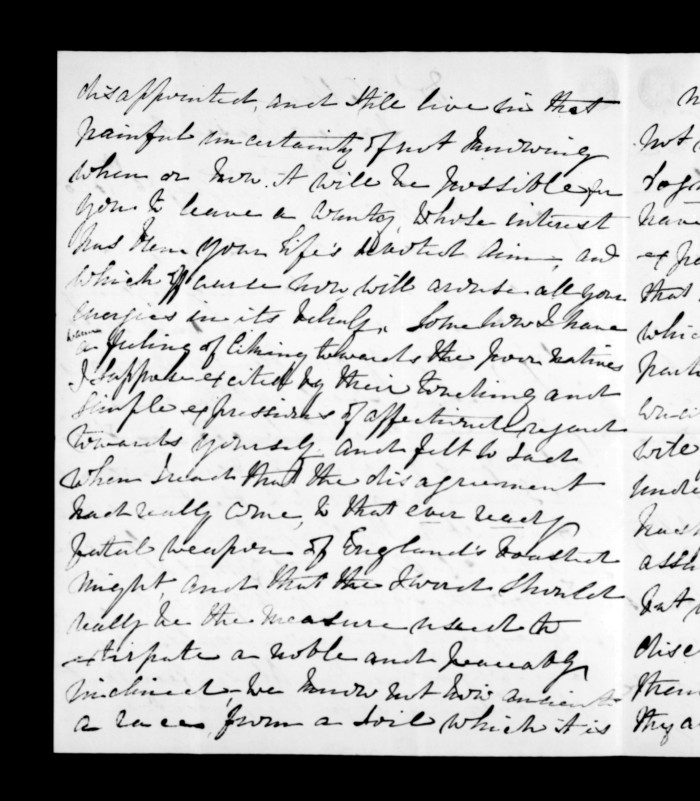 disappointed, and still live in that
painful uncertainty of not knowing
when or how it will be possible for
you to leave a country, whose interest
has been your life's devoted aim, and
which of course now, will arouse all your
energies in its behalf. Somehow I have
a feeling of liking towards the poor natives
I suppose excited by their touching and
simple expressions of affectionate regard
towards yourself and felt so sad
when I read that the disagreement
had really come, to that ever ready
fatal weapon of England's boasted
might, and that the sword should
really be the measure used to
extirpate a noble and peaceably
inclined, we know not how ancient
a race, from a soil which it is
not
have
that
whic
unde
but
disc
them
they a